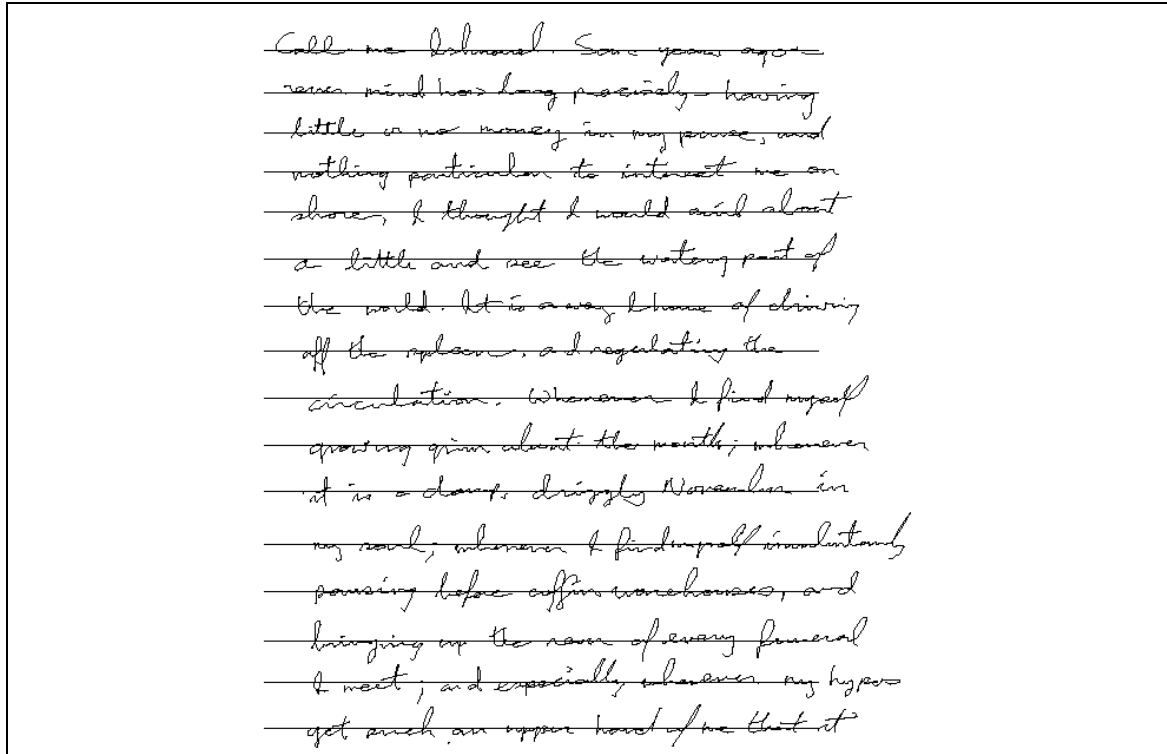 Call me Ishmael. Some years ago—
never mind how long precisely—having
little or no money in my purse, and
nothing particular to interest me on
shore, I thought I would sail about
a little and see the watery part of
the world. It is a way I have of driving
off the spleen, and regulating the
circulation. Whenever I find myself
growing grim about the mouth; whenever
it is a damp, drizzly November in
my soul; whenever I find myself involuntarily
pausing before coffin warehouses, and
bringing up the rear of every funeral
I meet; and especially whenever my hypos
get such an upper hand of me that it